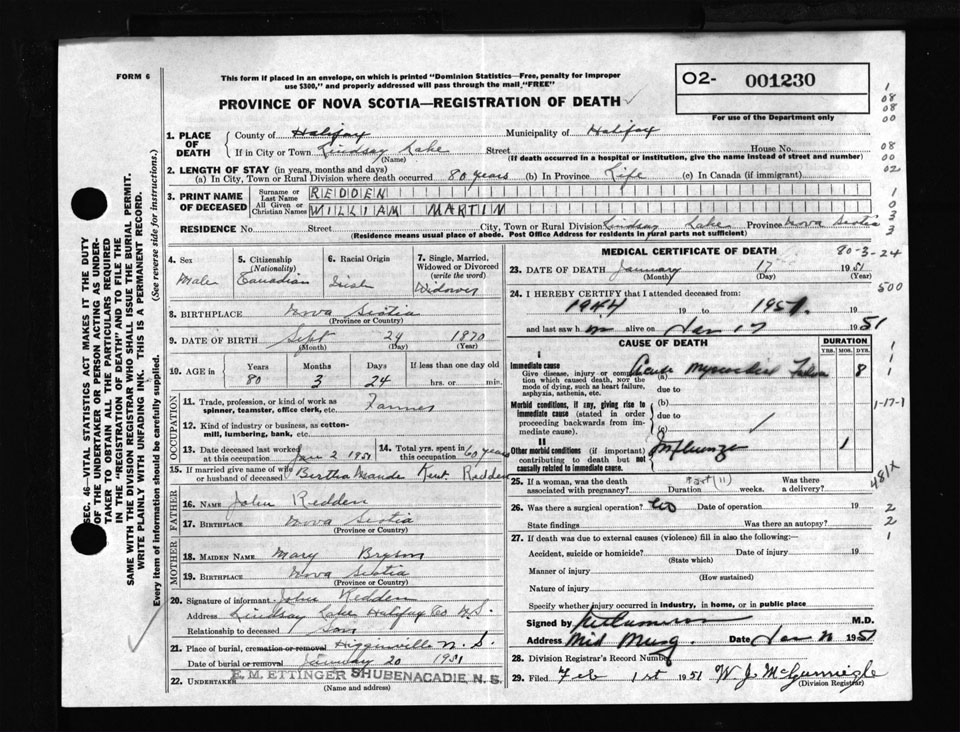 FORM 6
This form if placed in an envelope, on which is printed "Dominion Statistics—Free, penalty for improper
use $300," and properly addressed will pass through the mail "FREE"
O2- 001230
For use of the Department only
PROVINCE OF NOVA SCOTIA—REGISTRATION OF DEATH
1. PLACE OF DEATH
County of Halifax Municipality of Halifax
If in City or Town Lindsay Lake Street House No.
(Name) (If death occurred in a hospital or institution, give the name instead of street and number)
2. LENGTH OF STAY (in years, months and days)
(a) In City, Town or Rural Division where death occurred 80 years (b) In Province Life (c) In Canada (if immigrant)
3. PRINT NAME OF DECEASED
Surname or Last Name REDDEN
All Given or Christian Names WILLIAM MARTIN
RESIDENCE No. Street City, Town or Rural Division Lindsay Lake Province Nova Scotia
(Residence means usual place of abode. Post Office Address for residents in rural parts not sufficient)
4. Sex Male
5. Citizenship (Nationality) Canadian
6. Racial Origin Irish
7. Single, Married, Widowed or Divorced (write the word) Widower
8. BIRTHPLACE Nova Scotia
(Province or Country)
9. DATE OF BIRTH Sept 24 1870
(Month) (Day) (Year)
10. AGE in Years 80 Months 3 Days 24 If less than one day old
hrs. or min.
OCCUPATION
11. Trade, profession, or kind of work as spinner, teamster, office clerk, etc. Farmer
12. Kind of industry or business, as cotton-mill, lumbering, bank, etc.
13. Date deceased last worked at this occupation Jan 2 1951
14. Total yrs. spent in this occupation 60 years
15. If married give name of wife or husband of deceased Bertha Maude Kent Redden
FATHER
16. NAME John Redden
17. BIRTHPLACE Nova Scotia
(Province or Country)
MOTHER
18. MAIDEN NAME Mary Bryson
19. BIRTHPLACE Nova Scotia
(Province or Country)
20. Signature of informant John Redden
Address Lindsay Lake Halifax Co N.S.
Relationship to deceased Son
21. Place of burial, cremation or removal Higginsville N.S.
Date of burial or removal January 20 1951
22. UNDERTAKER E. M. ETTINGER SHUBENACADIE, N. S.
(Name and address)
MEDICAL CERTIFICATE OF DEATH
80-3-24
23. DATE OF DEATH January 17 1951
(Month) (Day) (Year)
24. I HEREBY CERTIFY that I attended deceased from:
1944 19 to 1951. 19
and last saw h m alive on Jan 17 1951
CAUSE OF DEATH
DURATION
YRS. MOS. DYS.
I
Immediate cause
Give disease, injury or complication which caused death, not the mode of dying, such as heart failure, asphyxia, asthenia, etc.
(a) Acute Myocardial Failure 8
due to
Morbid conditions, if any, giving rise to immediate cause (stated in order proceeding backwards from immediate cause).
(b)
due to
(c)
II
Other morbid conditions (if important) contributing to death but not causally related to immediate cause.
Influenza 1
25. If a woman, was the death associated with pregnancy? Duration weeks Was there a delivery?
26. Was there a surgical operation? No Date of operation 19
State findings Was there an autopsy?
27. If death was due to external causes (violence) fill in also the following:—
Accident, suicide or homicide? Date of injury 19
(State which)
Manner of injury
(How sustained)
Nature of injury
Specify whether injury occurred in industry, in home, or in public place
Signed by M.D.
Address Mid Musq. Date Jan 1951
28. Division Registrar's Record Number
29. Filed Feb 1st 1951 W. J. McGunnigle
(Division Registrar)
SEC. 46—VITAL STATISTICS ACT MAKES IT THE DUTY
OF THE UNDERTAKER OR PERSON ACTING AS UNDER-
TAKER TO OBTAIN ALL THE PARTICULARS REQUIRED
IN THE "REGISTRATION OF DEATH" AND TO FILE THE
SAME WITH THE DIVISION REGISTRAR WHO SHALL ISSUE THE BURIAL PERMIT.
WRITE PLAINLY WITH UNFADING INK. THIS IS A PERMANENT RECORD.
Every item of information should be carefully supplied. (See reverse side for instructions.)
1
08
08
00
08
00
02
1
0
3
3
500
1
1
1
1-17-1
481X
2
2
1